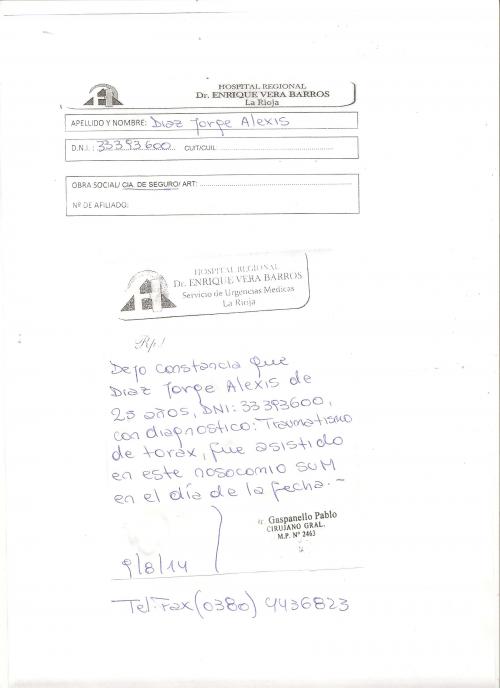 HOSPITAL REGIONAL
Dr. ENRIQUE VERA BARROS
La Rioja
APELLIDO Y NOMBRE: Diaz Jorge Alexis
D.N.I.: 33393600 CUIT/CUIL
OBRA SOCIAL/ CIA. DE SEGURO/ ART:
Nº DE AFILIADO:
HOSPITAL REGIONAL
Dr. ENRIQUE VERA BARROS
Servicio de Urgencias Medicas
La Rioja
Rp!
Dejo constancia que
Diaz Jorge Alexis de
25 años, DNI: 33393600,
con diagnostico: Traumatismo
de torax, fue asistido
en este nosocomio SUM
en el día de la fecha.-
Gaspanello Pablo
CIRUJANO GRAL.
M.P. Nº 2463
9/8/14
Tel-Fax (0380) 4436823